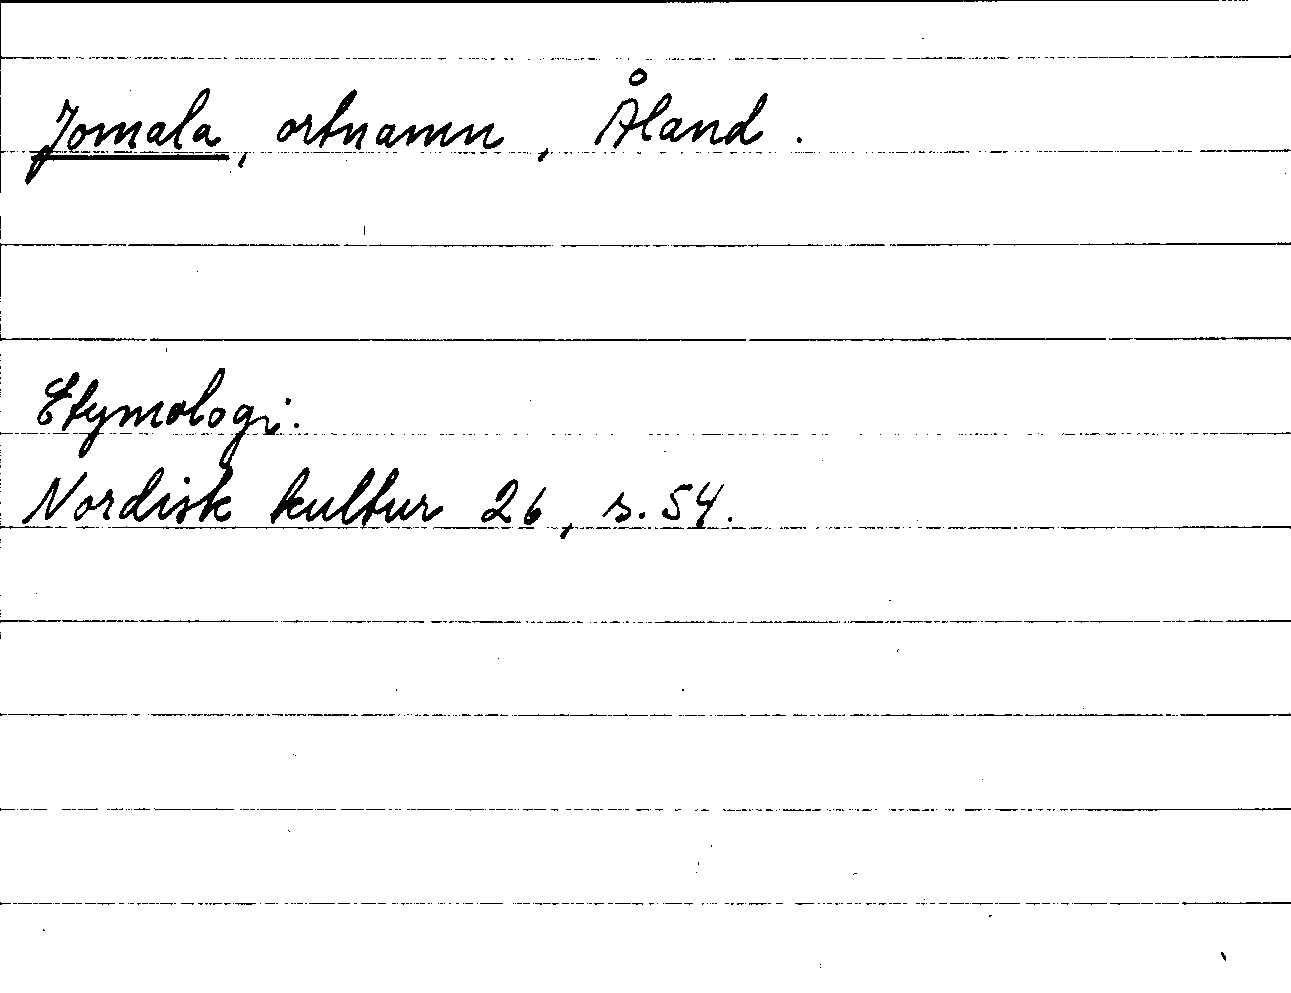 Jomala, ortnamn, Åland.
Etymologi.
Nordisk kultur 26, s. 54.